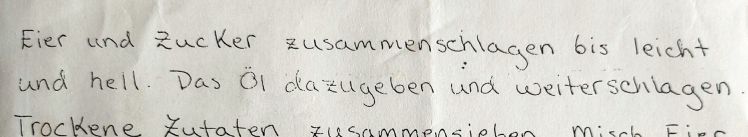 Eier und Zucker zusammenschlagen bis leicht
und hell. Das Öl dazugeben und weiterschlagen.
Trockene Zutaten zusammensieben Misch Eier